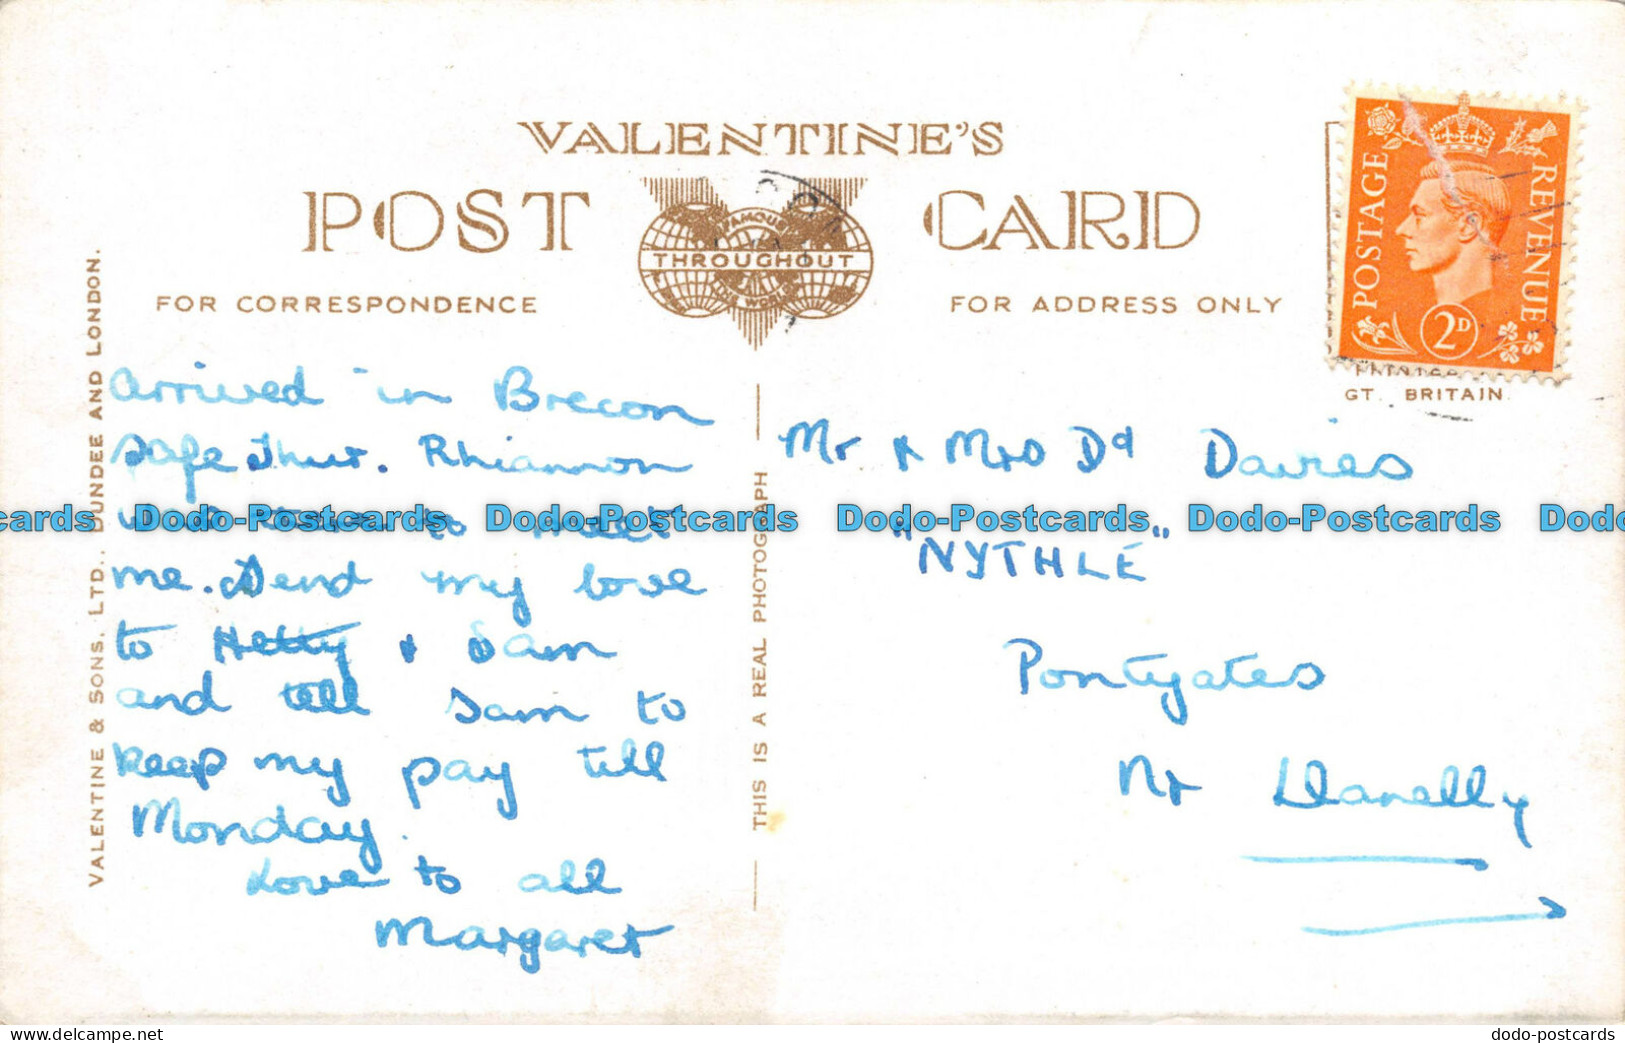 VALENTINE'S
POST CARD
FAMOUS
THROUGHOUT
THE WORLD
FOR CORRESPONDENCE
FOR ADDRESS ONLY
POSTAGE
REVENUE
2D
GT. BRITAIN.
VALENTINE & SONS, LTD., DUNDEE AND LONDON.
THIS IS A REAL PHOTOGRAPH
arrived in Brecon
safe Thur. Rhiannon
to meet
me. Send my love
to Hetty & Sam
and tell Sam to
keep my pay till
Monday.
Love to all
Margaret
Mr & Mrs Dd Davies
"NYTHLE"
Pontyates
Nr Llanelly
Dodo-Postcards Dodo-Postcards Dodo-Postcards Dodo-Postcards
https://www.delcampe.net
dodo-postcards